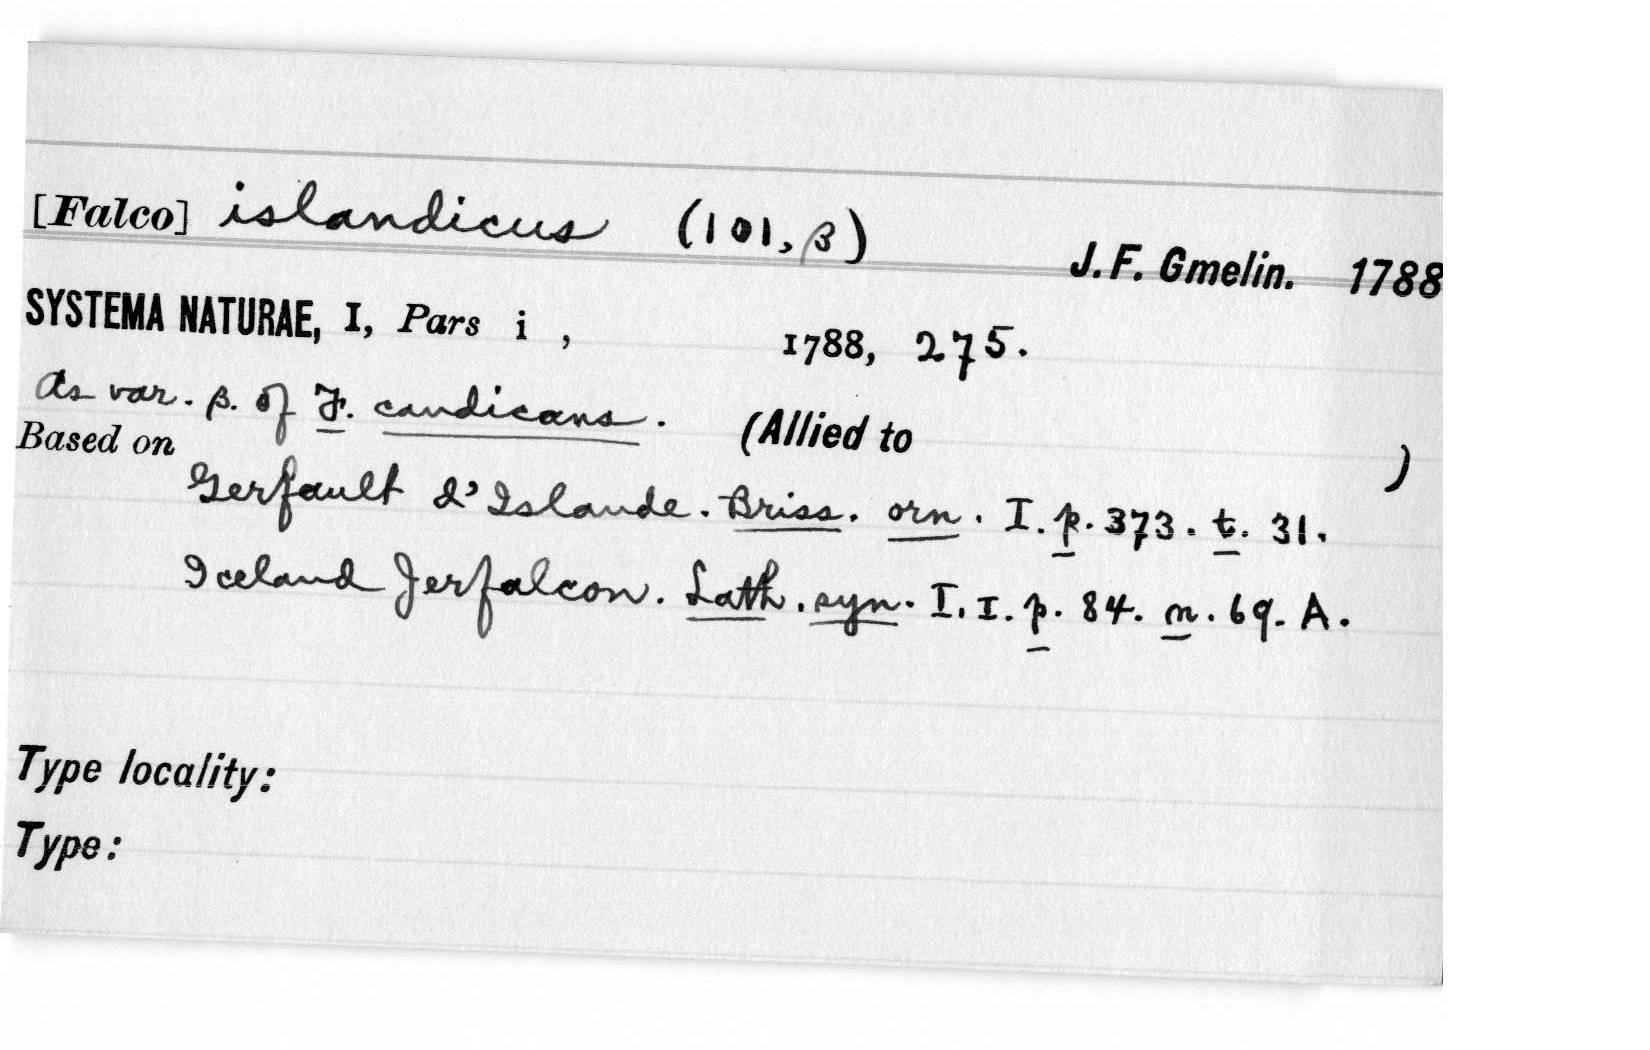 [Falco] islandicus (101, β) J. F. Gmelin. 1788
SYSTEMA NATURAE, I, Pars i , 1788, 275.
As var. β. of F. candicans. (Allied to )
Based on
Gerfault d'Islande. Briss. orn. I. p. 373. t. 31.
Iceland Jerfalcon. Lath. syn. I. I. p. 84. n. 69. A.
Type locality:
Type: